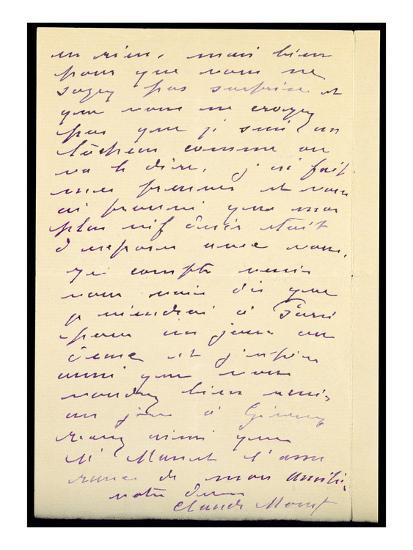 en rien, mais bien
pour que vous ne
soyez pas surprise et
que vous ne croyez
pas que je suis un
lâcheur comme on
va le dire, j'ai fait
mes preuves et vous
ai prouvé que mon
plus vif désir était
d'exposer avec vous.
je compte venir
vous voir dès que
je viendrai à Paris
pour un jour ou
deux et j'espère
aussi que vous
voudrez bien venir
un jour à Giverny
ainsi que
Mr Manet l'assu
rance de mon amitié,
votre dévoué
Claude Monet